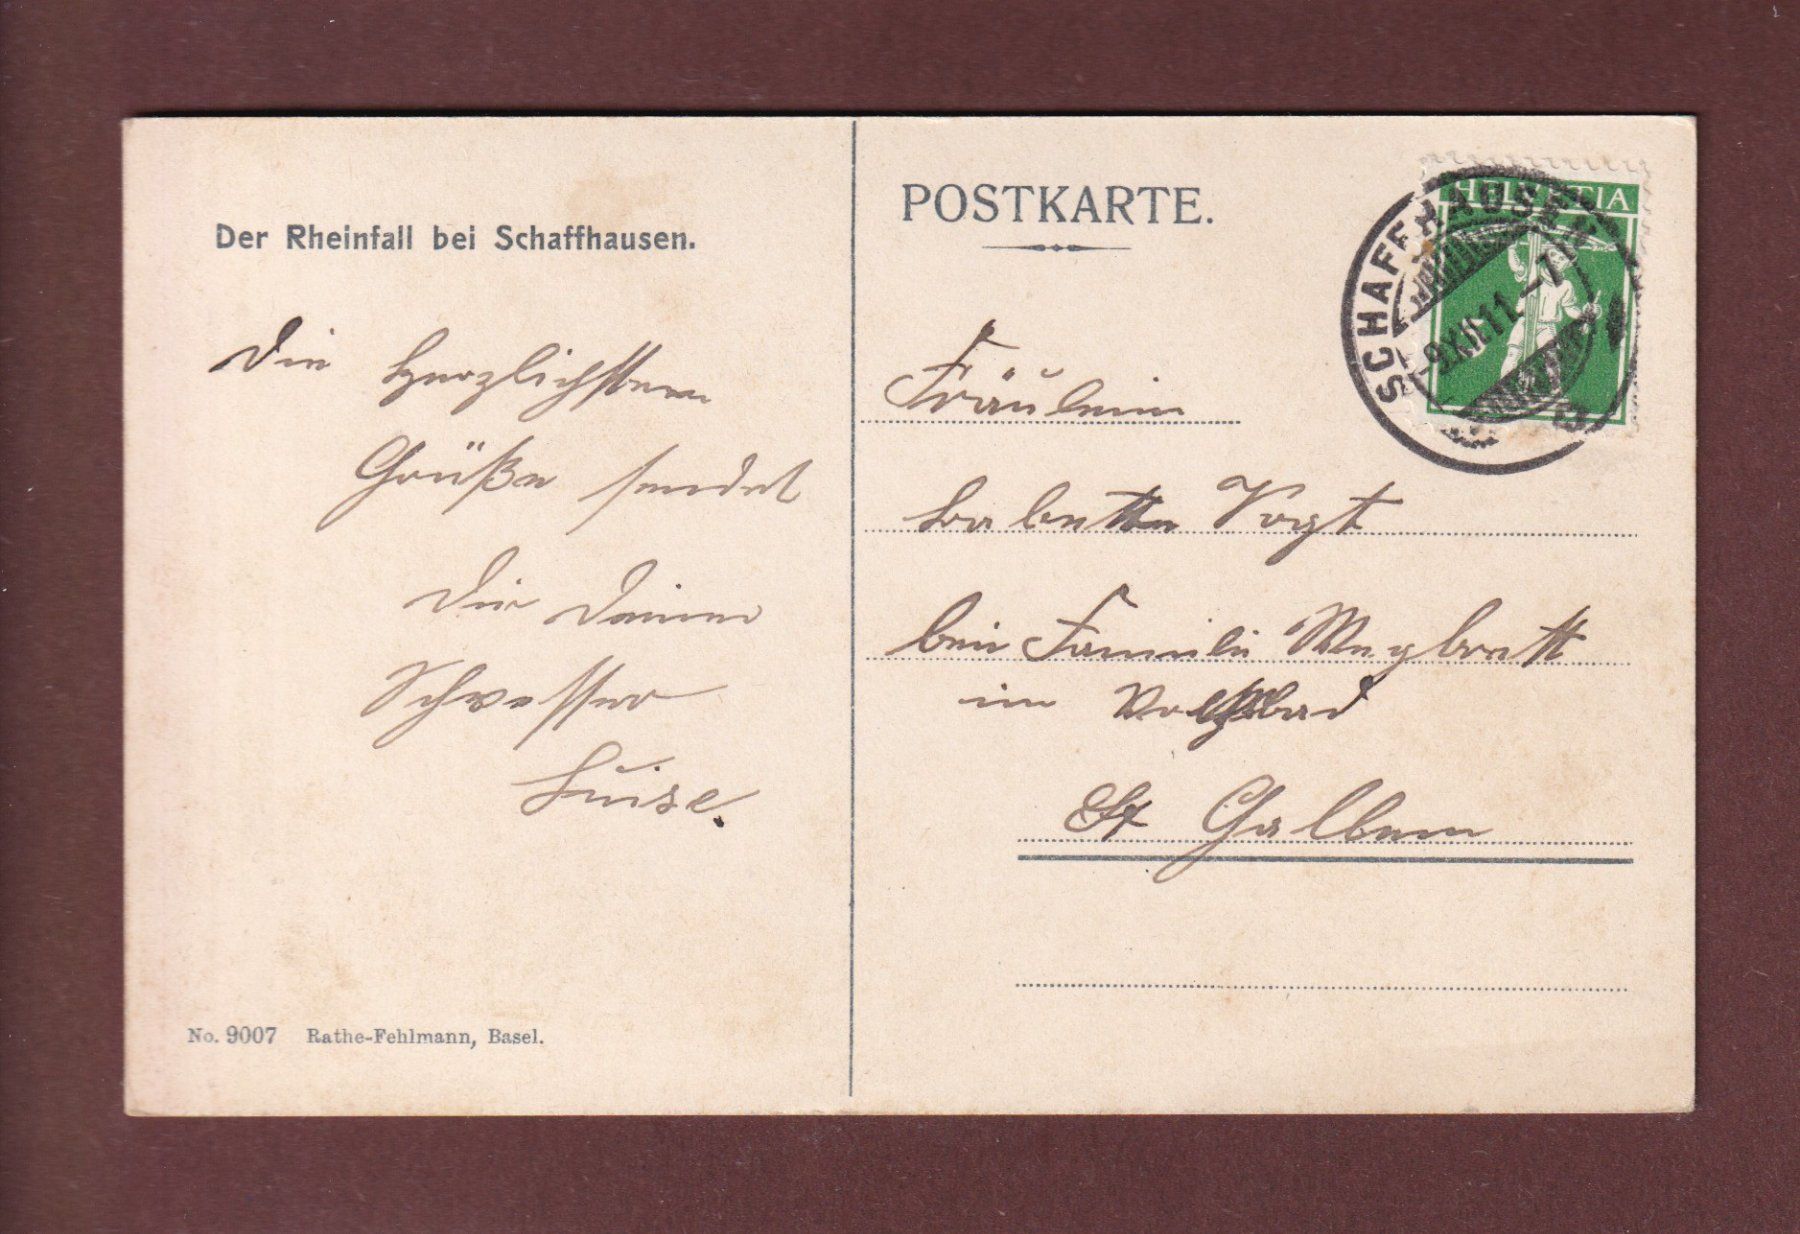 Der Rheinfall bei Schaffhausen.
Die herzlichsten
Grüße sendet
Dir Deine
Schwester
Luise.
No. 9007 Rathe-Fehlmann, Basel.
POSTKARTE.
HELVETIA
SCHAFFHAUSEN
-9.XII.11.-7
Fräulein
Babette Vogt
bei Familie
im Volksbad
St Gallen